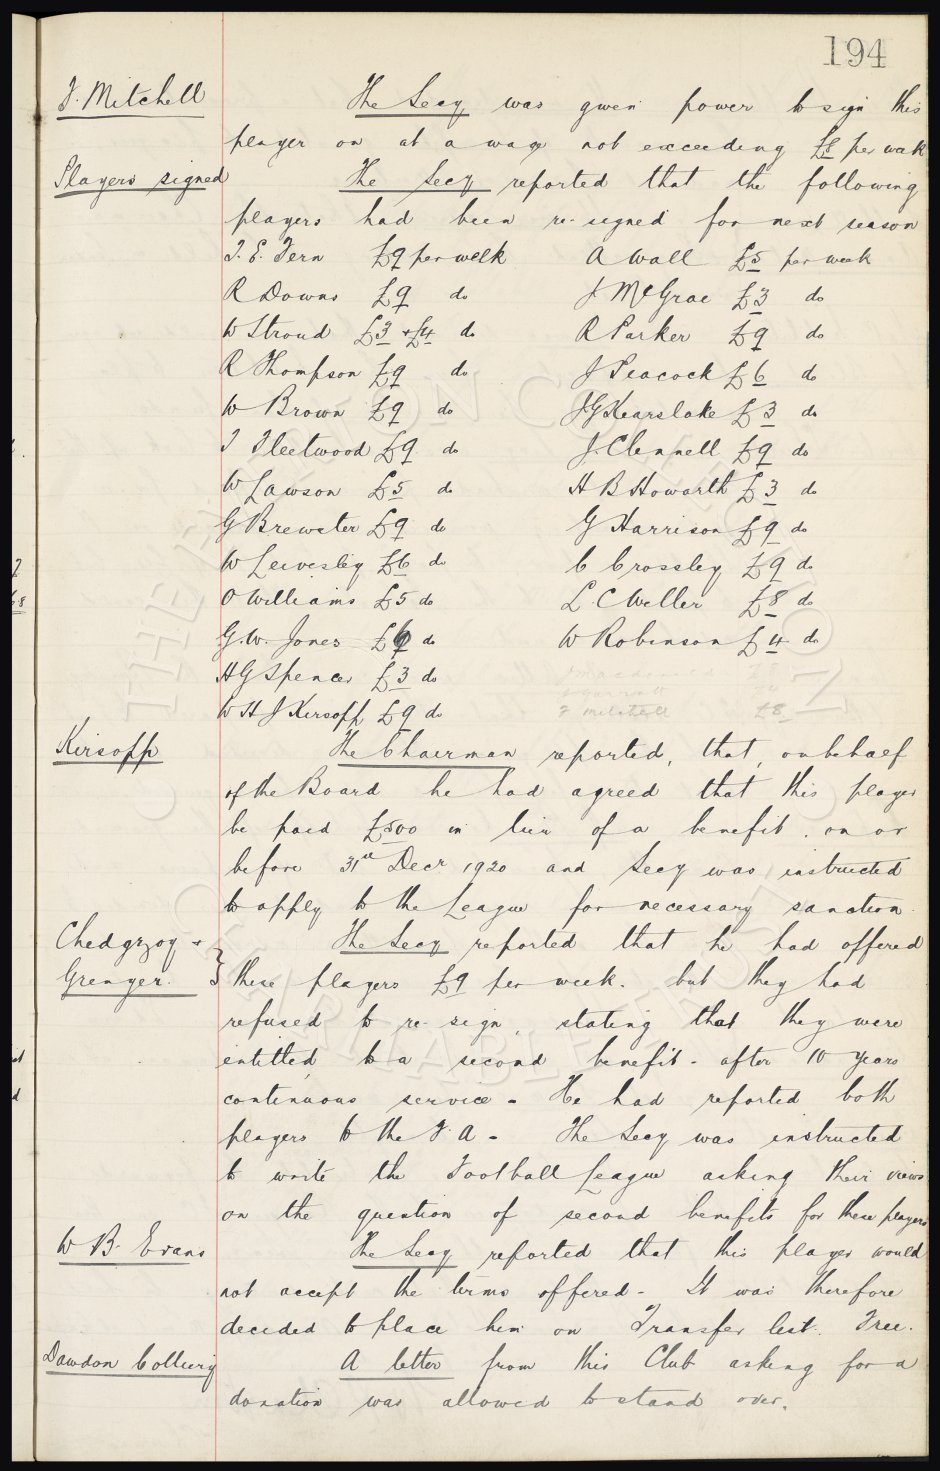 194
F. Mitchell The Secy was given power to sign this
player on at a wage not exceeding £8 per week
Players signed The Secy reported that the following
players had been re-signed for next season
T. E. Fern £9 per week A Wall £5 per week
R Downs £9 do J McGrae £3 do
W Stroud £3 + £4 do R Parker £9 do
R Thompson £9 do J Peacock £6 do
W Brown £9 do J G Kearslake £3 do
T Fleetwood £9 do J. Clennell £9 do
W Lawson £5 do H B Howarth £3 do
G Brewster £9 do G Harrison £9 do
W Leivesley £6 do C Crossley £9 do
O Williams £5 do L C Weller £8 do
G. W. Jones £6 do W Robinson £4 do
H G Spencer £3 do
W H J Kirsopp £9 do F Mitchell £8
Kirsopp The Chairman reported, that, on behalf
of the Board he had agreed that this player
be paid £500 in lieu of a benefit. on or
before 31st Decr 1920 and Secy was instructed
to apply to the League for necessary sanction.
Chedgzoy + The Secy reported that he had offered
Grenyer. } these players £9 per week. but they had
refused to re-sign, stating that they were
entitled to a second benefit - after 10 years
continuous service - He had reported both
players to the F. A - The Secy was instructed
to write the Football League asking their views
on the question of second benefits for these players
W. B. Evans The Secy reported that this player would
not accept the terms offered - It was therefore
decided to place him on Transfer list. Free.
Dawdon Colliery A letter from this Club asking for a
donation was allowed to stand over.
THE EVERTON COLLECTION
CHARITABLE TRUST